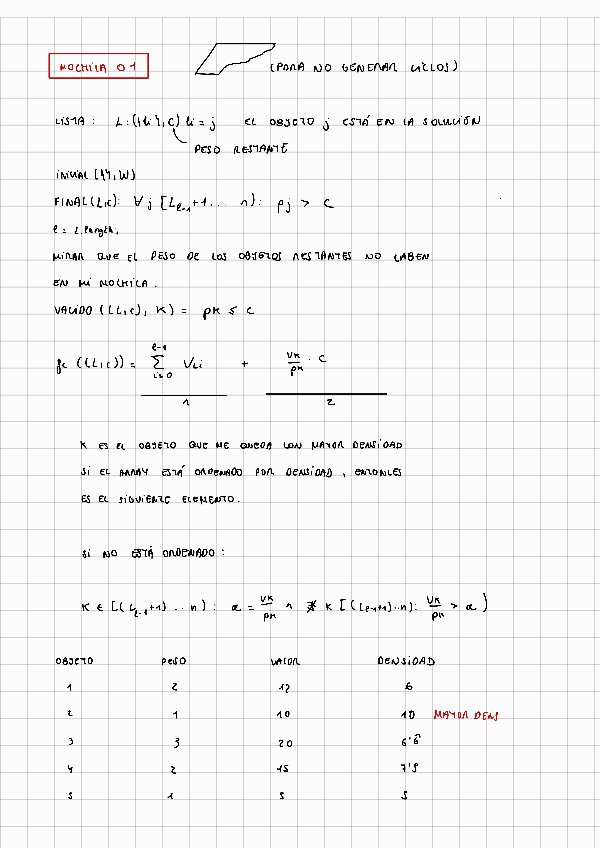 MOCHILA 01
(PARA NO GENERAR CICLOS)
LISTA: L:({Li},C) Li = j EL OBJETO j ESTÁ EN LA SOLUCIÓN
PESO RESTANTE
FINAL(L,C): ∀ j [Lℓ-1+1... n): pj > C
ℓ = L.length;
MIRAR QUE EL PESO DE LOS OBJETOS RESTANTES NO CABEN
EN MI MOCHILA.
VALIDO ((L,C), K) = pK ≤ C
fc ((L,C)) = ∑ i=0 ℓ-1 VLi + VK/pK · C
1 2
K ES EL OBJETO QUE ME QUEDA CON MAYOR DENSIDAD
SI EL ARRAY ESTÁ ORDENADO POR DENSIDAD, ENTONCES
ES EL SIGUIENTE ELEMENTO.
SI NO ESTÁ ORDENADO:
K ∈ [(Lℓ-1+1)...n): α = VK/pK ∧ ∄ K [(Lℓ-1+1)...n): VK/pK > α)
OBJETO PESO VALOR DENSIDAD
1 2 12 6
2 1 10 10 MAYOR DENS
3 3 20 6'6
4 2 15 7'5
5 1 5 5